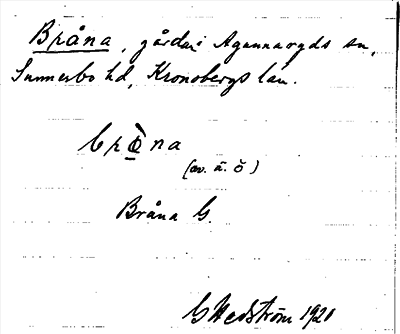 Bråna, gårdar i Agunnaryds sn,
Sunnerbo hd, Kronobergs län.
(av. ä. ö)
Bråna G.
G Hedström 1921